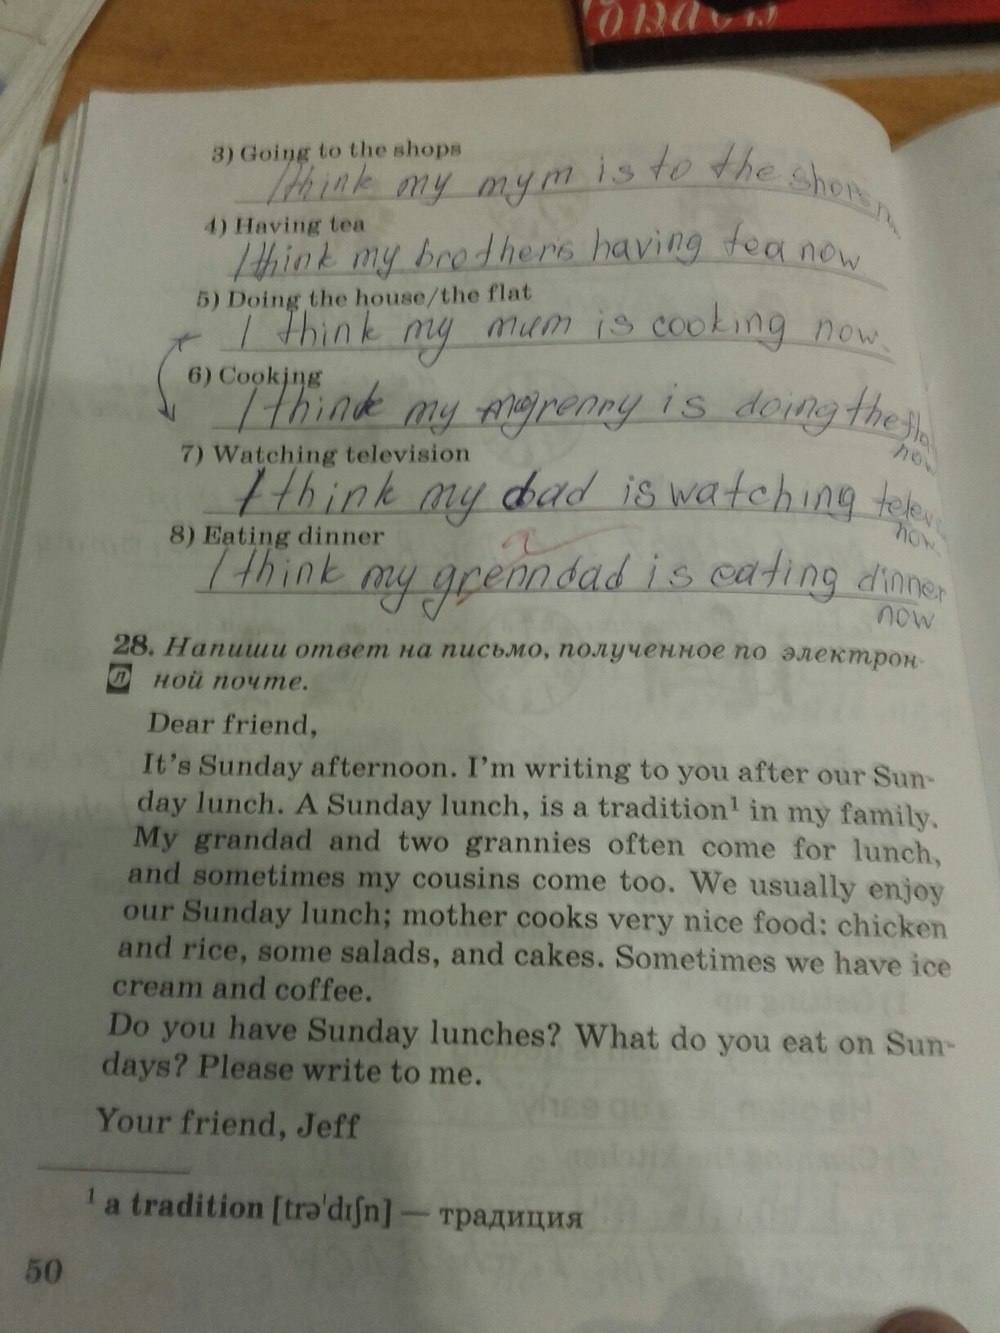 3) Going to the shops
I think my mym is to the shops
4) Having tea
I think my brother's having tea now
5) Doing the house/the flat
I think my mum is cooking now.
6) Cooking
I think my grenny is doing the
now
7) Watching television
I think my dad is watching
now.
8) Eating dinner
I think my grenndad is eating dinner
now
28. Напиши ответ на письмо, полученное по электрон-
Л ной почте.
Dear friend,
It's Sunday afternoon. I'm writing to you after our Sun-
day lunch. A Sunday lunch, is a tradition¹ in my family.
My grandad and two grannies often come for lunch,
and sometimes my cousins come too. We usually enjoy
our Sunday lunch; mother cooks very nice food: chicken
and rice, some salads, and cakes. Sometimes we have ice
cream and coffee.
Do you have Sunday lunches? What do you eat on Sun-
days? Please write to me.
Your friend, Jeff
¹ a tradition [trə'dɪʃn] — традиция
50